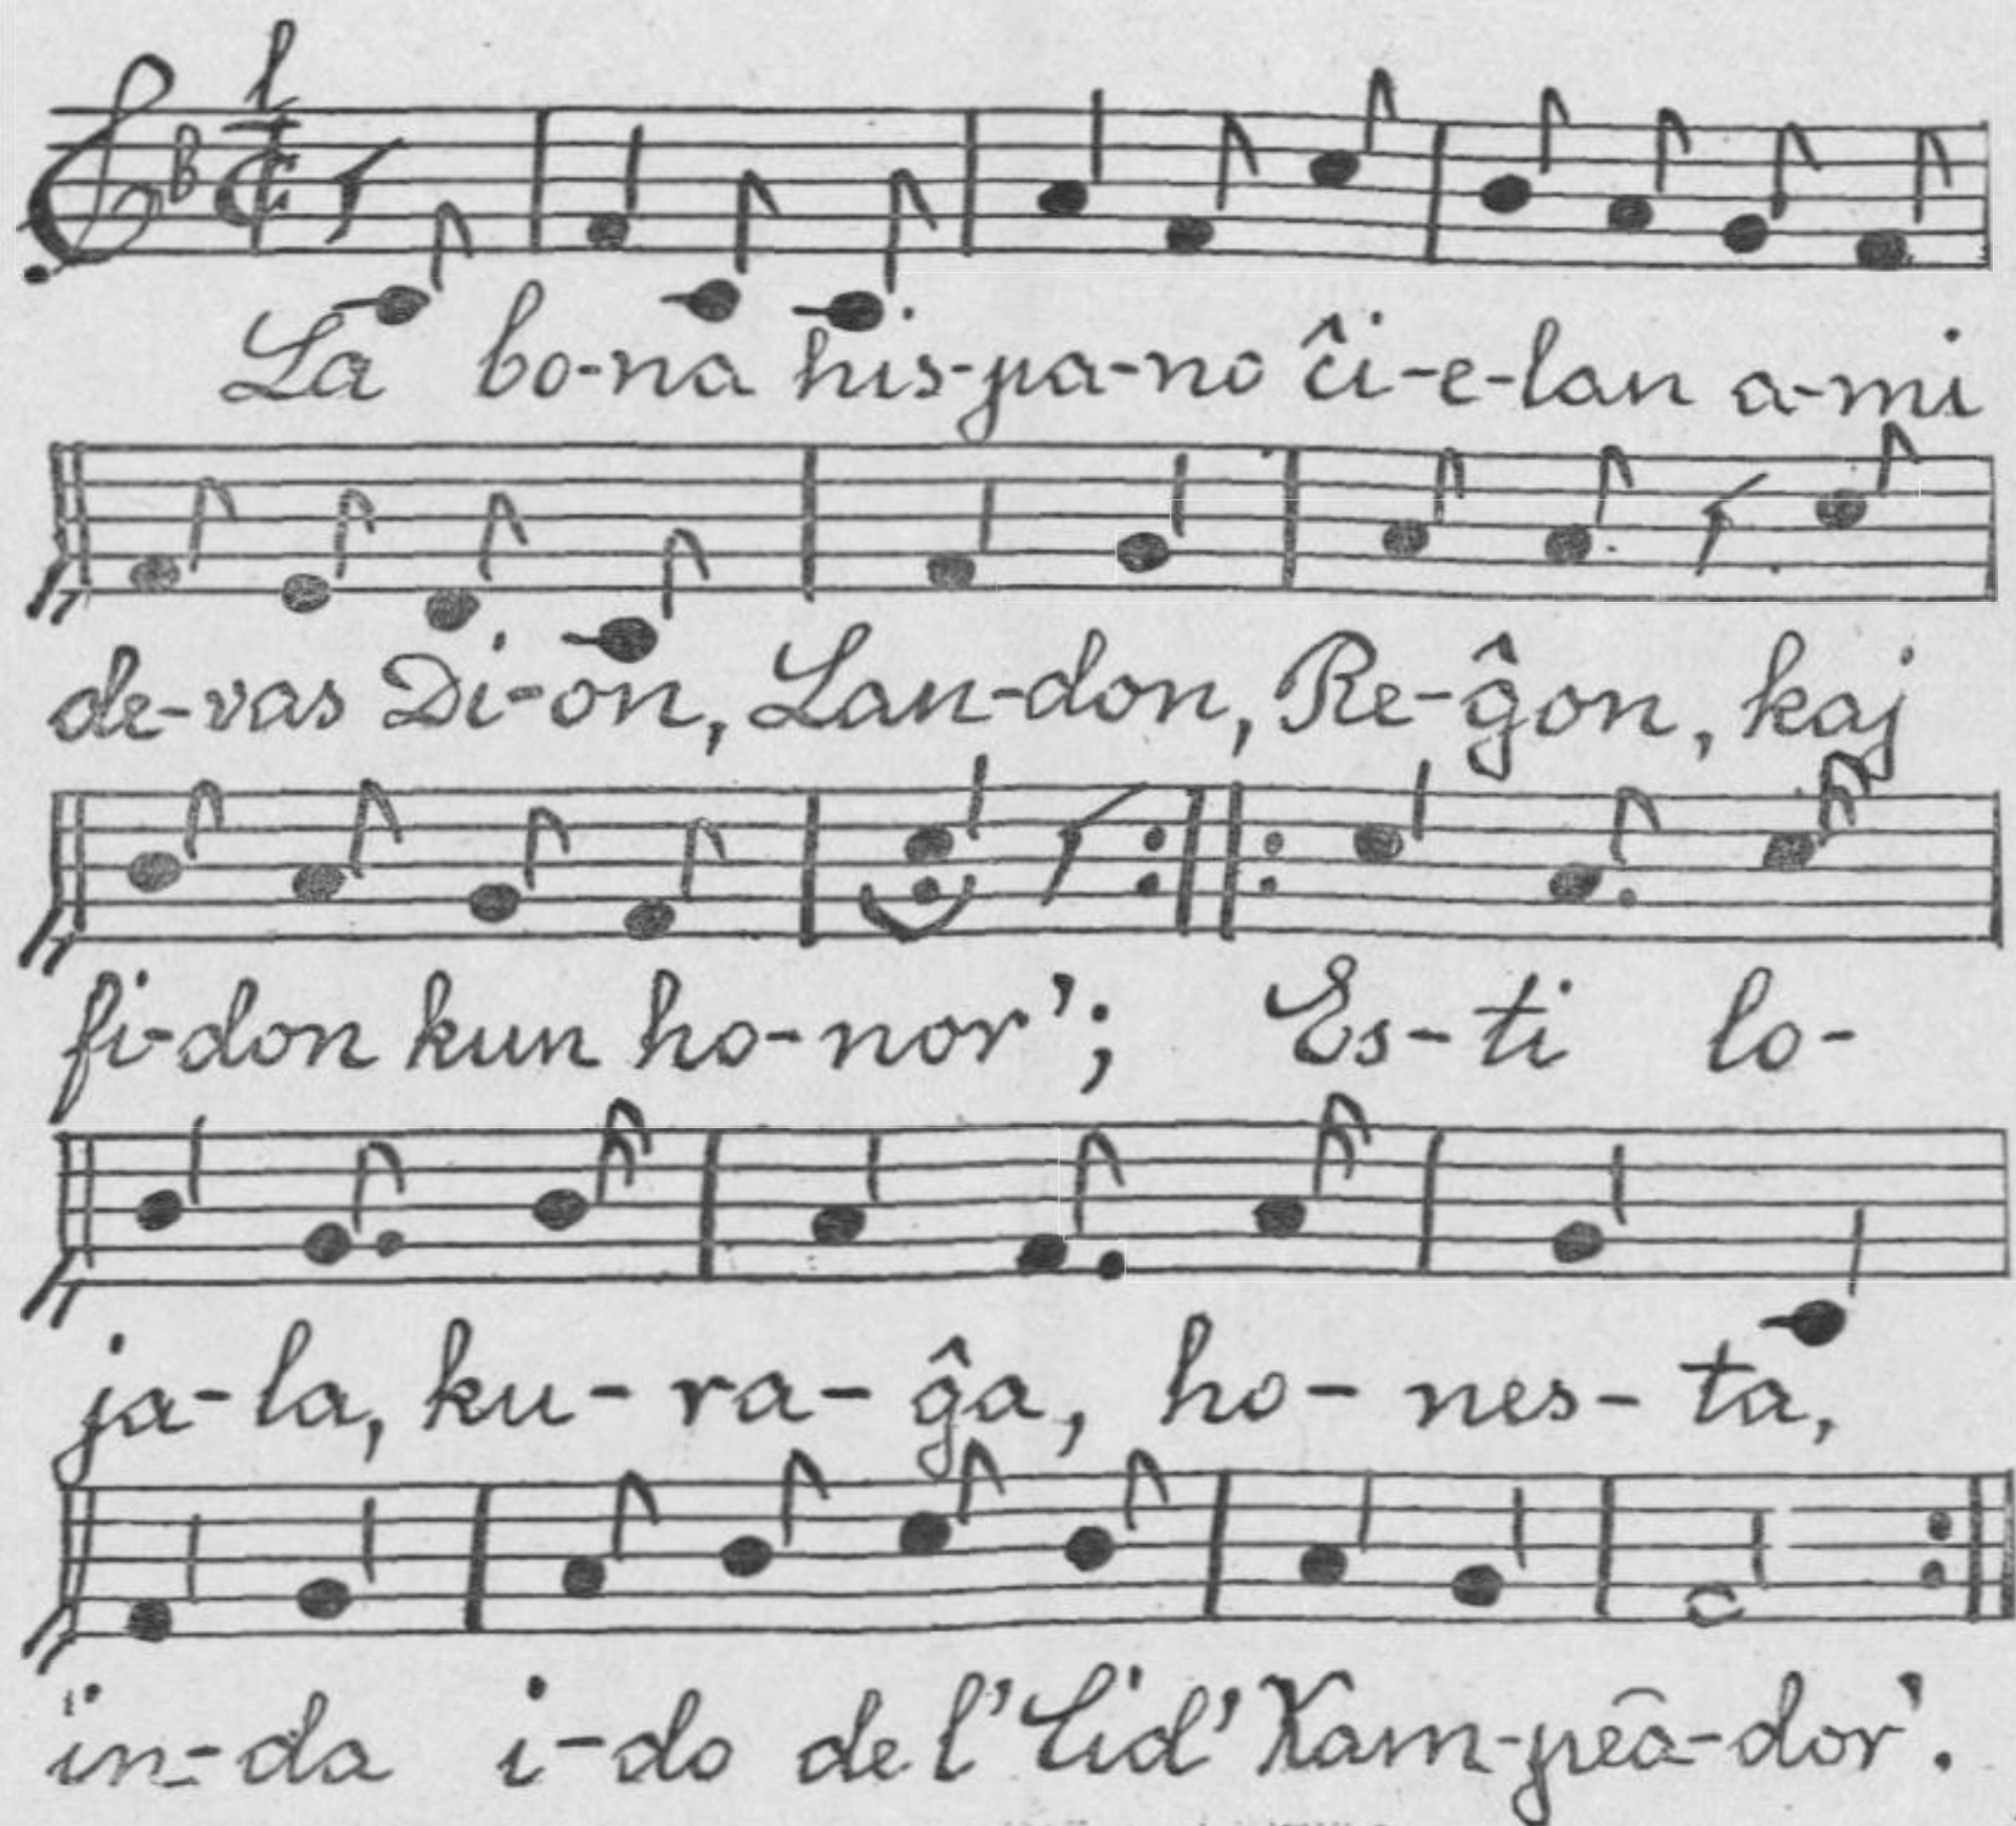 La bo-na his-pa-no ĉi-e-lan a-mi
de-vas Di-on, Lan-don, Re-ĝon, kaj
fi-don kun ho-nor'; Es-ti lo-
ja-la, ku-ra-ĝa, ho-nes-ta,
in-da i-do de l' Cid' Kam-pêa-dor'.